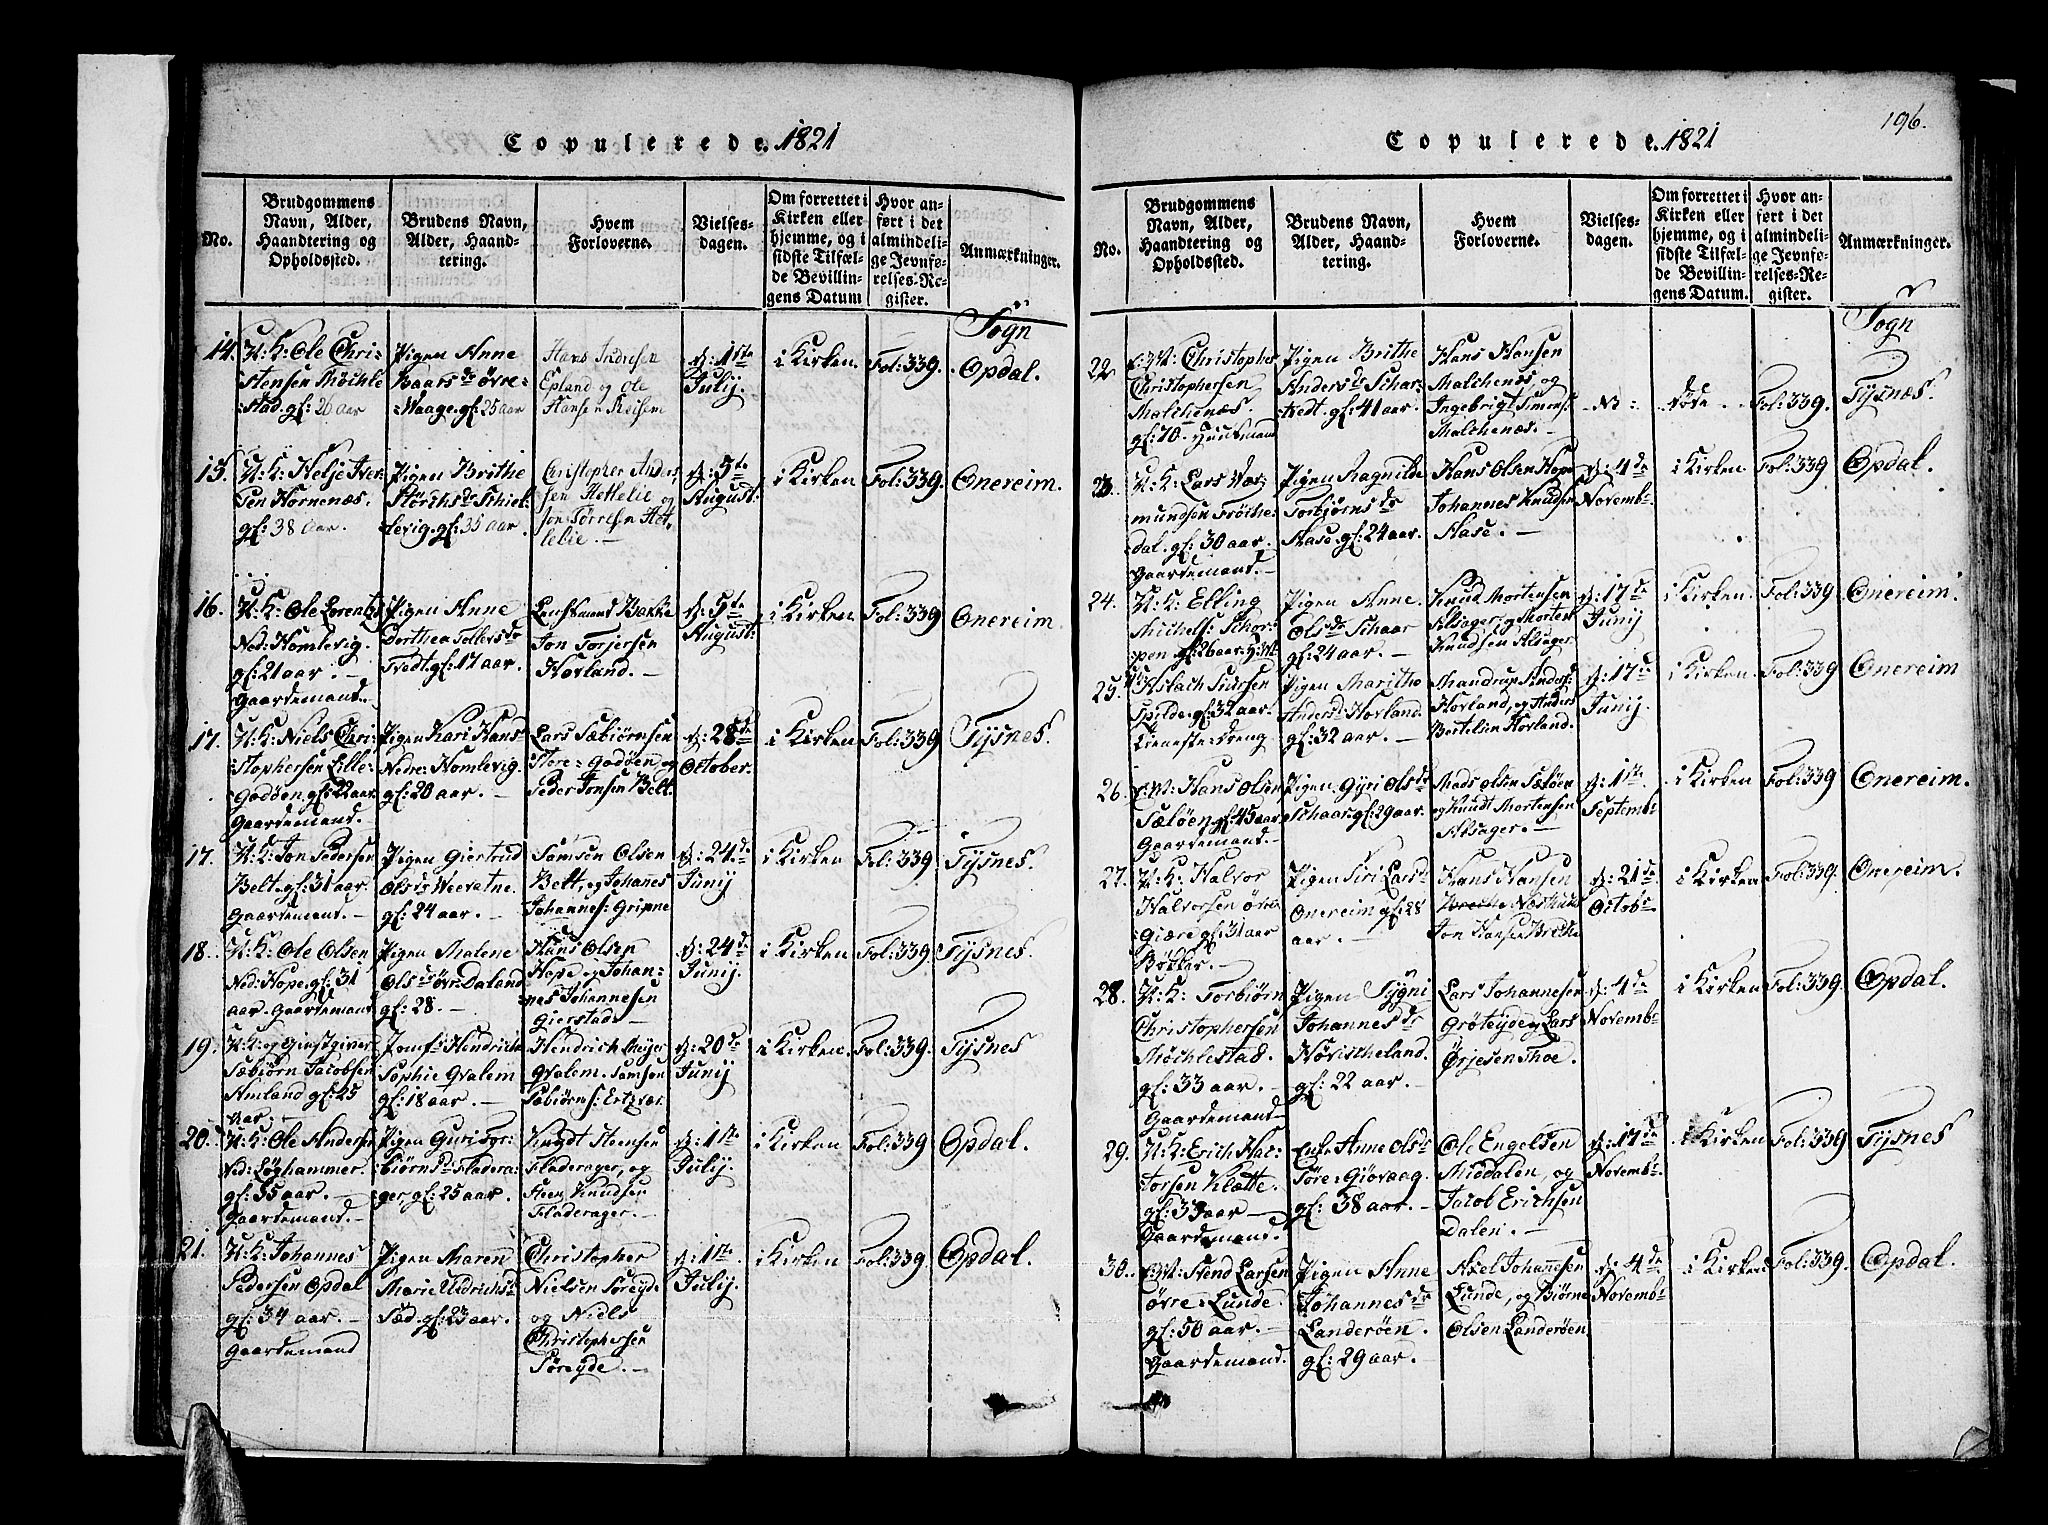 Copulerede. 1821
No.
Brudgommens
Navn, Alder,
Haandtering og
Opholdssted.
Brudens Navn,
Alder, Haand-
tering.
Hvem
Forloverne.
Vielses-
dagen.
Om forrettet i
Kirken eller
hjemme, og i
sidste Tilfæl-
de Bevillin-
gens Datum
Hvor an-
ført i det
almindeli-
ge Jevnfø-
relses-Re-
gister.
Anmærkninger.
Sogn
14.
U: K: Ole Chri-
stensen Möchle
stad. gl: 26 aar
Pigen Anne
Baars dr øvre
Waage. gl: 25 aar
Hans Andresen
Epland og Ole
Hansen Reisem
d: 1ste
Julij
i Kirken
Fol: 339.
Opdal.
15.
U: K: Helje Iver
sen Hornenæs.
gl: 38 aar.
Pigen Brithe
Størchs dr Schiel
levig. gl: 35 aar.
Christopher Anders
sen Hettelie og
Jon Torresen Het
lelie.
d: 5te
August
i Kirken
Fol: 339.
Onereim.
16.
U: K: Ole Lorentz
Ned: Homlevig.
gl: 21 aar.
Gaardemand.
Pigen Anne
Dorthea Tollers dr
Tvedt. gl: 17 aar.
Lensmand Bakke
Jon Torjersen
Hovland.
d: 5te
August
i Kirken
Fol: 339
Onereim
17.
U: K: Niels Chri
stophersen Lille
Godøen. gl: 22 aar
Gaardemand.
Pigen Kari Hans
Nedre: Homlevig.
gl: 20 aar.
Lars Sæbiørnsen
Store-Godøen, og
Peder Jonsen Belt.
d: 28de
October.
i Kirken
Fol: 339
Tysnes.
17.
U: K: Jon Pedersen
Belt. gl: 31 aar.
Gaardemand.
Pigen Giertrud
Ols dr Weevatne.
gl: 24 aar.
Samsen Olsen
Belt, og Johannes
Johannes: Gripne
d: 24de
Junij
i Kirken
Fol: 339.
Tysnes.
18.
U: K: Ole Olsen
Ned: Hope. gl: 31
aar. Gaardemand
Pigen Malene
Ols dr øvr: Daland
gl: 28.
Hans Olsen
Hope og Johan-
nes Johannesen
Gierstad.
d: 24de
Junij.
i Kirken
Fol: 339.
Tysnes.
19.
U: K: og Giestgiver
Sæbiørn Jacobsen
Amland gl: 25
aar.
Jomf: Hendrich
Sophie Qvalem
gl: 18 aar.
Hendrich Meyer
Qvalem. Samson
Sæbiørns: Ertzvær
d: 20de
Junij
i Kirken
Fol: 339.
Tysnes
20.
U: K: Ole Andersen
Ned: Løghammer.
gl: 35 aar.
Gaardemand.
Pigen Guri
biørn dr Fladera-
ger, gl: 25 aar.
Knudt Steensen
Fladerager, og
Steen Knudsen
Fladerager.
d: 1ste
Julij.
i Kirken
Fol: 339
Opdal.
21.
U: K: Johannes
Pedersen Opdal
gl: 34 aar.
Gaardemand
Pigen Maren
Marie Uldrichs d
Sæd. gl: 23 aar.
Christopher
Nielsen Søreyde
og Niels
Christophersen
Søreyde.
d: 1ste
Julij.
i Kirken
Fol: 339.
Opdal.
196.
Copulerede. 1821
No.
Brudgommens
Navn, Alder,
Haandtering og
Opholdssted.
Brudens Navn,
Alder, Haand-
tering.
Hvem
Forloverne.
Vielses-
dagen.
Om forrettet i
Kirken eller
hjemme, og i
sidste Tilfæl-
de Bevillin-
gens Datum.
Hvor an-
ført i det
almindeli-
ge Jevnfø-
relses-Re-
gister.
Anmærkninger.
Sogn
22
E: M: Christopher
Christophersen
Malchenæs.
gl: 70. Huusmand
Pigen Brithe
Anders dr Schar-
tvedt. gl: 41 aar.
Hans Hansen
Malchenæs, og
Ingebrigt Simons:
Malchenæs.
døde
Fol: 339.
Tysnæs.
23.
U: K: Lars Vær
mundsen Trøthe
dal. gl: 30 aar.
Gaardemand.
Pigen Ragnilde
Torbjørns dr
Aase. gl: 24 aar.
Hans Olsen Hope
Johannes Knudsen
Aase.
d: 4de
Novembr
i Kirken
Fol: 339
Opdal.
24.
U: K: Elling
Michels: Schor-
pen gl: 26 aar.
Pigen Anne
Ols dr Schaar
gl: 24 aar.
Knud Mortensen
Alsager, og Morten
Knudsen Alsager.
d: 17de
Junij
i Kirken.
Fol: 339.
Onereim.
25.
Aslach Siursen
Spilde. gl: 32 aar.
tieneste: dreng
Pigen Marithe
Anders d Hovland.
gl: 32 aar.
Mandrup Anders:
Hovland, og Anders
Bertelsen Hovland.
d: 17de
Junij.
i Kirken
Fol: 339
Onereim
26.
E: M: Hans Olsen
Sæløen gl: 45 aar
Gaardemand.
Pigen Gyri Ols dr
Schaar. gl: 29 aar.
Mads Olsen Sæløen
og Knudt Mortensen
Alsager.
d: 1ste
Septemb:
i Kirken
Fol: 339
Onereim.
27.
U: K: Halvor
Halvorsen øvre
Giære gl: 31 aar
Bøkker.
Pigen Siri Lars d
Onereim gl: 28
aar.
Hans Hansen
Næshuus
Jon Hansen Breche
d: 21de
Octobr
i Kirken
Fol: 339.
Onereim.
28.
U: K: Torbiørn
Christophersen
Møchlestad.
gl: 33 aar.
Gaardemand.
Pigen Sygni
Johannes dr
Høviskeland.
gl: 22 aar.
Lars Johannesen
Grøteyde, og Lars
Ørjesen Thoe.
d: 4de
Novembr
i Kirken
Fol: 339
Opdal.
29.
U: K: Erich Hal-
torsen Klætte.
gl: 33 aar
Gaardemand.
Enke Anne Ols dr
Tøre-Giøvaag.
gl: 38 aar.
Ole Engelsen
Middalen, og
Jacob Erichsen
Dalen.
d: 17de
Novembr
i Kirken
Fol: 339
Tysnes
30.
E: M: Stend Larsen
øvre-Lunde.
gl: 50 aar.
Gaardemand.
Pigen Anne
Johannes dr
Landerøen.
gl: 29 aar.
Axel Johannesen
Lunde, og Biørne
Olsen Landerøen
d: 4de
Novembr
i Kirken
Fol: 339.
Opdal.